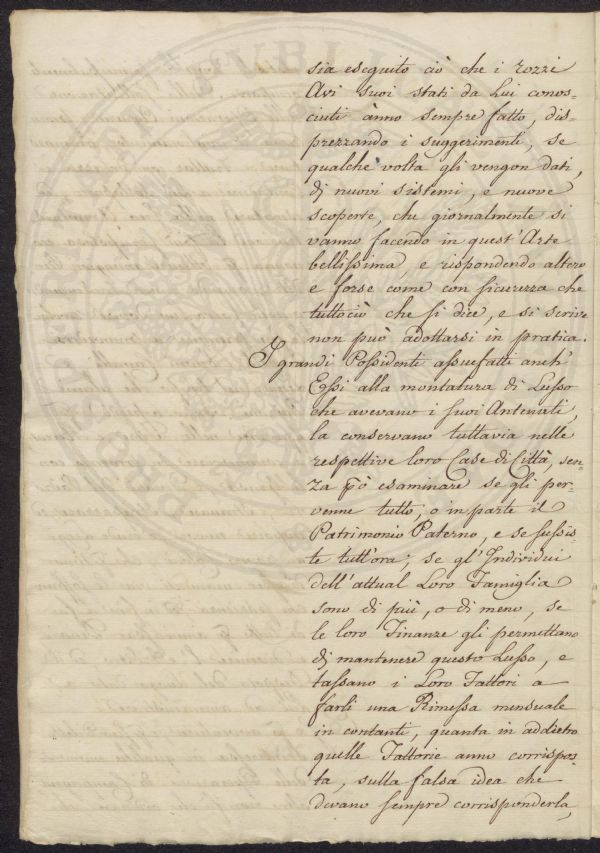 sia eseguito ciò che i rozzi
Avi suoi stati da Lui conos-
ciuti ànno sempre fatto, dis-
prezzando i suggerimenti, se
qualche volta gli vengon dati,
di nuovi sistemi, e nuove
scoperte, che giornalmente si
vanno facendo in quest'Arte
bellissima, e rispondendo altero
e forse come con sicurezza che
tuttociò che si dice, e si scrive
non può adottarsi in pratica.
I grandi Possidenti assuefatti anch'
Essi alla montatura di Lusso
che avevano i suoi Antenati,
la conservano tuttavia nelle
respettive loro Case di Città, sen-
za p̄ò esaminare se gli per-
venne tutto, o in parte il
Patrimonio Paterno, e se sussis-
te tutt'ora; se gl'Individui
dell'attual Loro Famiglia
sono di più, o di meno, se
le loro Finanze gli permettano
di mantenere questo Lusso, e
tassano i Loro Fattori a
farli una Rimessa mensuale
in contanti, quanta in addietro
quelle Fattorie anno corrispos-
ta, sulla falsa idea che
devano sempre corrisponderla,